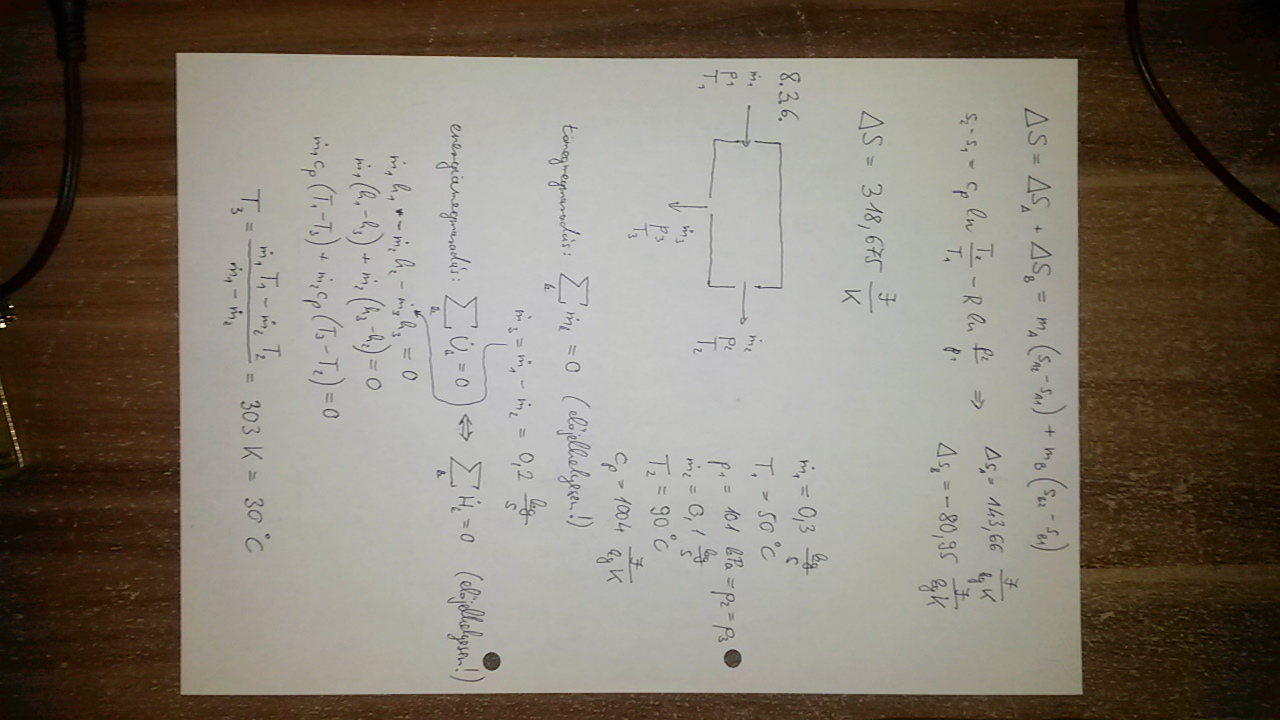 ΔS = ΔS_A + ΔS_B = m_A (s_A2 - s_A1) + m_B (s_B2 - s_B1)
s₂ - s₁ = c_p ln T₂/T₁ - R ln p₂/p₁ ⇒ Δs_A = 143,66 J/kgK
Δs_B = -80,95 J/kgK
ΔS = 318,675 J/K
8.3.6.
ṁ₁
p₁
T₁
ṁ₂
p₂
T₂
ṁ₃
p₃
T₃
ṁ₁ = 0,3 kg/s
T₁ = 50°C
p₁ = 101 kPa = p₂ = p₃
ṁ₂ = 0,1 kg/s
T₂ = 90°C
c_p = 1004 J/kgK
tömegmegmaradás: Σ ṁ_i = 0 (előjelhelyesen!)
ṁ₃ = ṁ₁ - ṁ₂ = 0,2 kg/s
energiamegmaradás: Σ U̇_i = 0 ⇔ Σ Ḣ_i = 0 (előjelhelyesen!)
ṁ₁h₁ - ṁ₂h₂ - ṁ₃h₃ = 0
ṁ₁(h₁-h₃) + ṁ₂(h₃-h₂) = 0
ṁ₁c_p(T₁-T₃) + ṁ₂c_p(T₃-T₂) = 0
T₃ = (ṁ₁T₁ - ṁ₂T₂)/(ṁ₁ - ṁ₂) = 303 K = 30°C